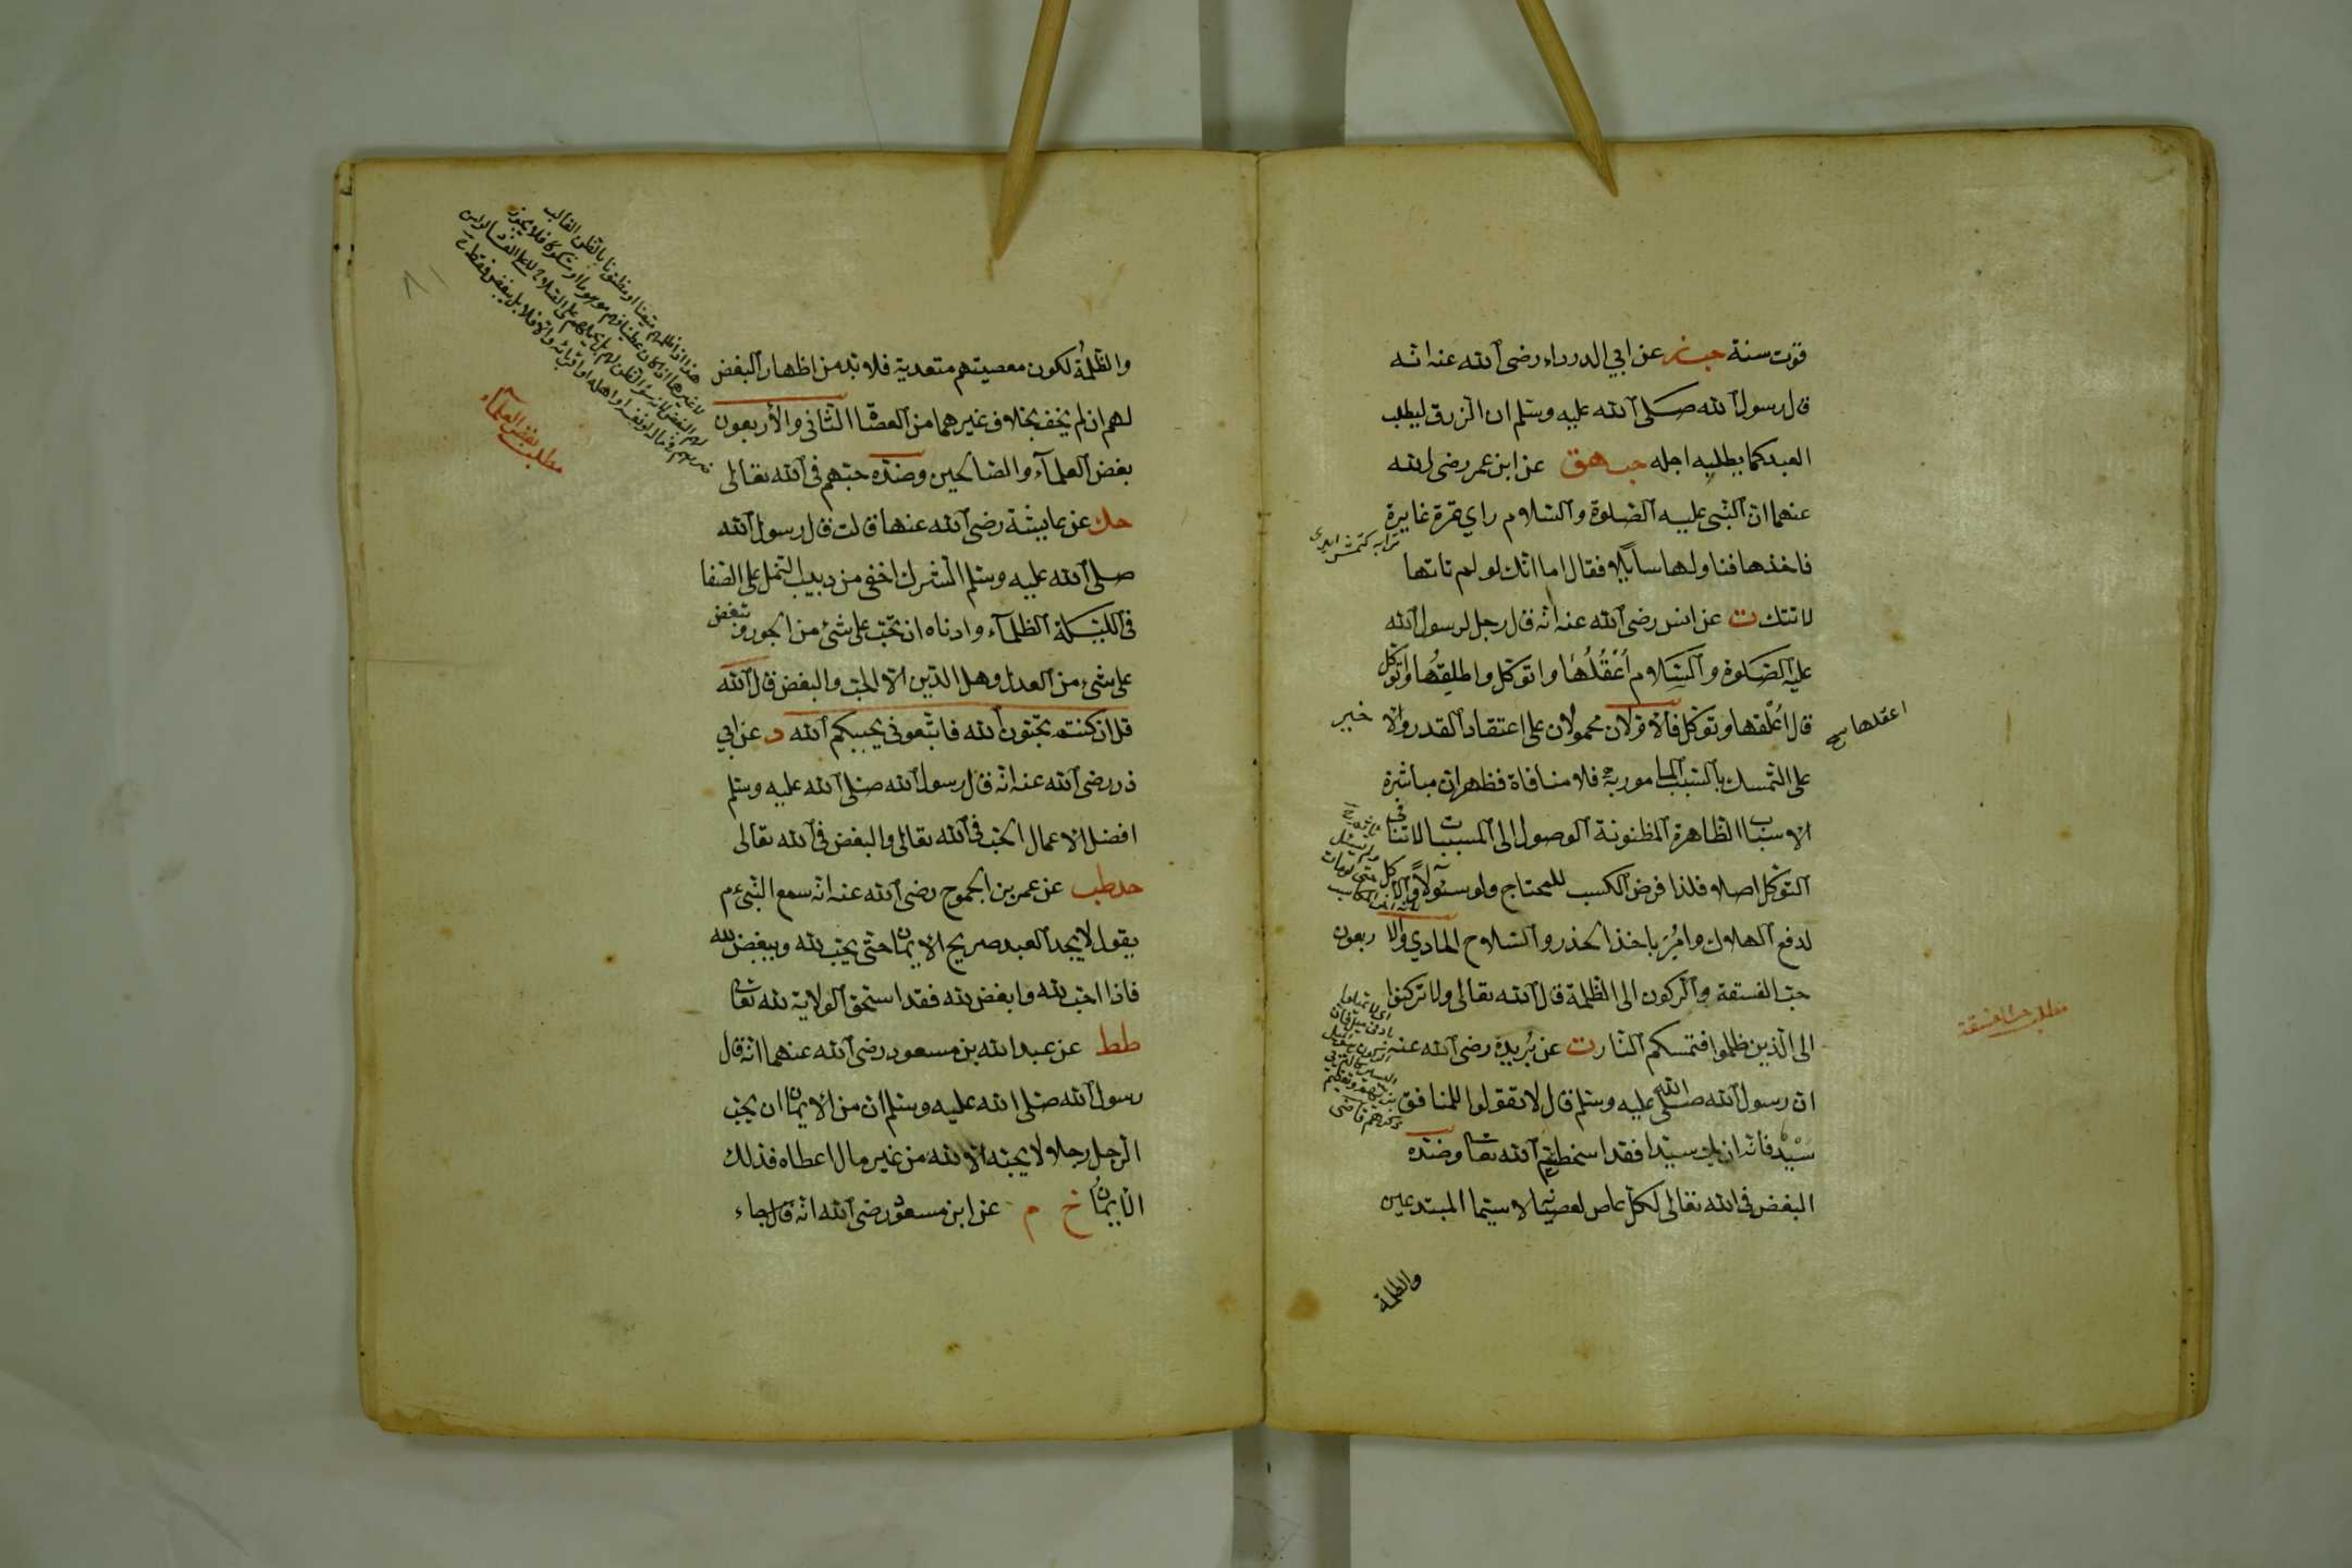 قوت سنة حب ز عن ابي الدرداء رضى الله عنه انه
قال رسول الله صلى الله عليه وسلم ان الرزق ليطلب
العبد كما يطلبه اجله حب هق عن ابن عمر رضى الله
عنهما ان النبى عليه الصلوة والسلام راي تمرة غايرة
فاخذها فناولها سائلا فقال اما انك لو لم تاتها
لاتتك ت عن انس رضى الله عنه انه قال رجل لرسول الله
عليه الصلوة والسلام أعقلها واتوكل او اطلقها واتوكل
قال اعقلها وتوكل فالاولان محمولان على اعتقاد القدر والاخير
اعقلها صح
على التمسك بالسبب المامور به فلا منافاة فظهر ان مباشرة
الاسباب الظاهرة المظنونة الوصول الى المسببات لا تنافى
التوكل اصلا فلذا فرض الكسب للمحتاج ولو سئولا والاكل
لدفع الهلاك وامر باخذ الحذر والسلاح الحادي والاربعون
حب الفسقة والركون الى الظلمة قال الله تعالى ولا تركنوا
مطلب حب الفسقة
الى الذين ظلموا فتمسكم النار ت عن بريدة رضى الله عنه
ان رسول الله صلى الله عليه وسلم قال لا تقولوا للمنافق
سيد فانه ان يك سيدا فقد اسخطتم الله تعا وضده
البغض فى الله تعالى لكل عاص لعصيانه لا سيما المبتدعين
والظلمة
والظلمة لكون معصيتهم متعدية فلا بد من اظهار البغض
لهم ان لم يخف بخلاف غيرهما من العصاة الثانى والاربعون
بغض العلماء والصالحين وضده حبهم فى الله تعالى
مطلب بغض العلماء
حك عن عايشة رضى الله عنها قالت قال رسول الله
صلى الله عليه وسلم الشرك اخفى من دبيب النمل على الصفا
فى الليلة الظلماء وادناه ان تحب على شئ من الجور وتبغض
على شئ من العدل وهل الدين الا الحب والبغض قال الله
قل ان كنتم تحبون الله فاتبعونى يحببكم الله د عن ابي
ذر رضى الله عنه انه قال رسول الله صلى الله عليه وسلم
افضل الاعمال الحب فى الله تعالى والبغض فى الله تعالى
حد طب عن عمر بن الجموح رضى الله عنه انه سمع النبى عم
يقول لا يجد العبد صريح الايمان حتى يحب لله ويبغض لله
فاذا احب لله وابغض لله فقد استحق الولاية لله تعا
طط عن عبد الله بن مسعود رضى الله عنهما انه قال
رسول الله صلى الله عليه وسلم ان من الايمان ان يحب
الرجل رجلا لا يحبه الا لله من غير مال اعطاه فذلك
الايمان خ م عن ابن مسعود رضى الله انه قال جاء